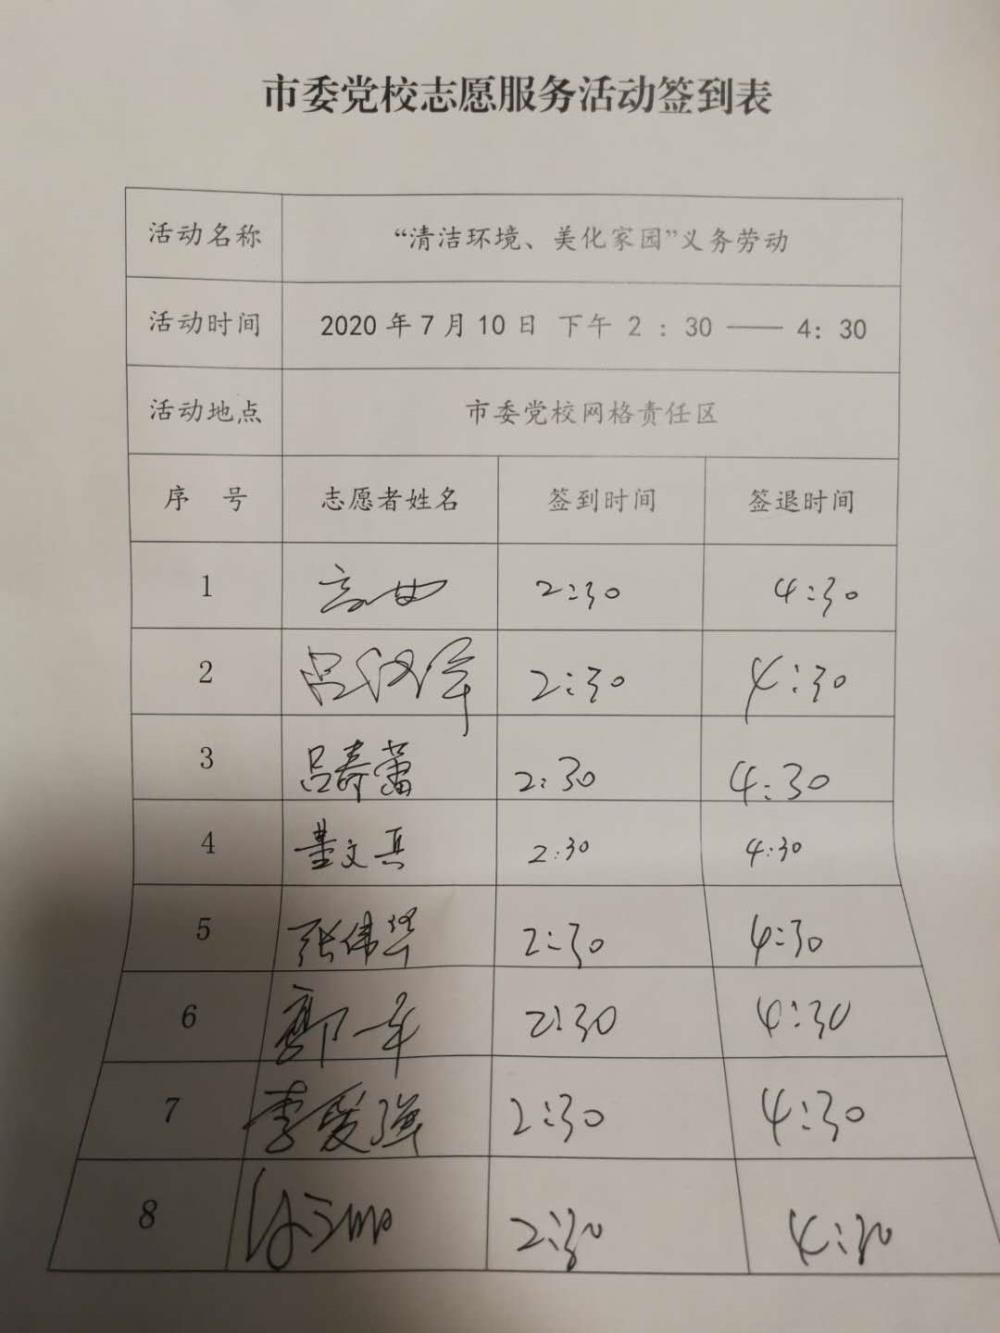 市委党校志愿服务活动签到表
活动名称 “清洁环境、美化家园”义务劳动
活动时间 2020年7月10日 下午 2：30 —— 4：30
活动地点 市委党校网格责任区
序 号 志愿者姓名 签到时间 签退时间
1 2:30 4:30
2 吕 2:30 4:30
3 吕春蕾 2:30 4:30
4 董文兵 2:30 4:30
5 张伟华 2:30 4:30
6 2:30 4:30
7 李爱强 2:30 4:30
8 2:30 4:30